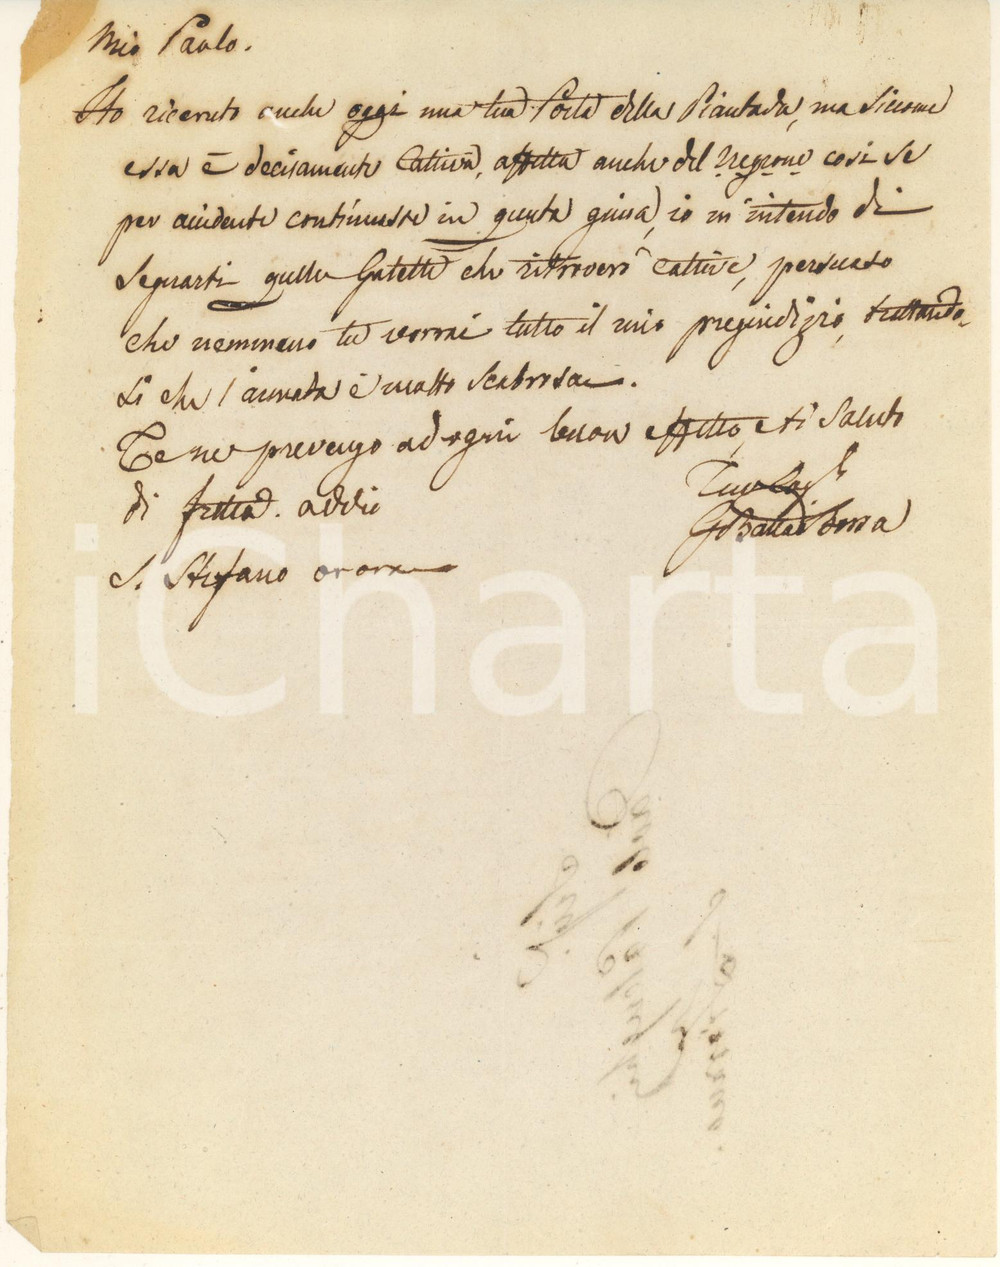 Mio Paolo.
Ho ricevuto anche oggi una tua della Piantada, ma siccome
essa è decisamente cattiva, affetta anche del negrone così se
per accidente continuasse in questa guisa, io m'intendo di
segnarti quelle Galette che ritroverò cattive, persuaso
che nemmeno tu vorrai tutto il mio pregiudizio, trattando-
si che l'annata è molto scabrosa.
Te ne prevengo ad ogni buon effetto, e ti saluto
di fretta. addio
Tuo
GBatta
S. Stefano
iCharta